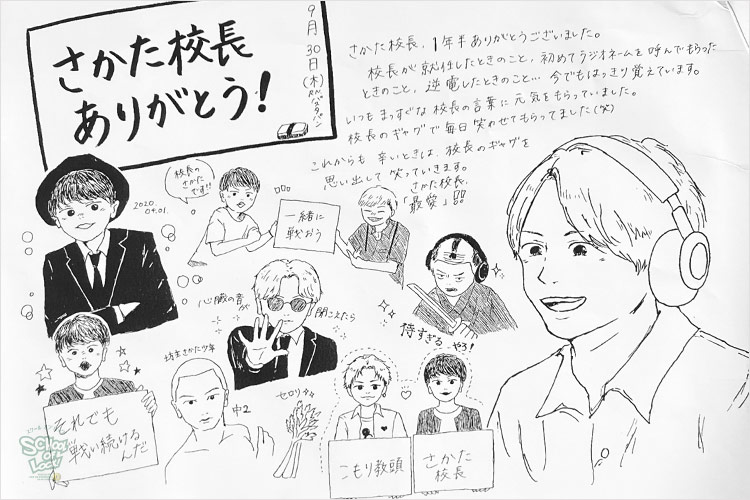 さかた校長
ありがとう!
9月30日(木)
RN バスタパン
さかた校長、1年半ありがとうございました。
校長が就任したときのこと、初めてラジオネームを呼んでもらった
ときのこと、逆電したときのこと… 今でもはっきり覚えています。
いつもまっすぐな校長の言葉に元気をもらっていました。
校長のギャグで毎日笑わせてもらってました(笑)
これからも 辛いときは、校長のギャグを
思い出して 笑っていきます。
さかた校長、
「最榮」!!
校長の
さかた
です!!
2020.
04.01.
一緒に
戦おう
心臓の音
が
聞こえたら
侍すぎる…やろ!
それでも
戦い続ける
んだ
坊主さかた少年
中2
セロリ
こもり教頭
さかた
校長
SCHOOL
OF
LOCK!